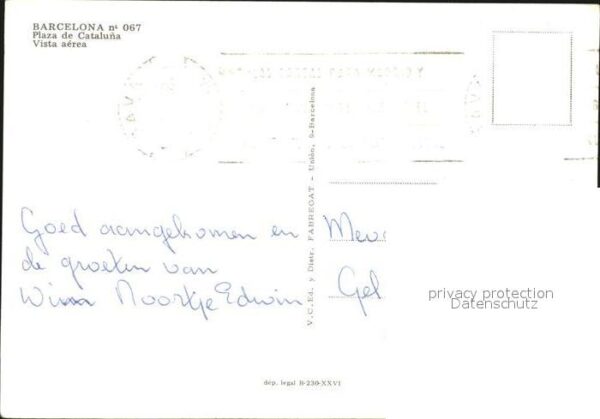 BARCELONA nº 067
Plaza de Cataluña
Vista aérea
Goed aangekomen en
de groeten van
Wim Noortje Edwin
V.C.Ed. y Distr. FABREGAT - Unión, 9-Barcelona
Mev
Gel
privacy protection
Datenschutz
dép. legal B-230-XXVI